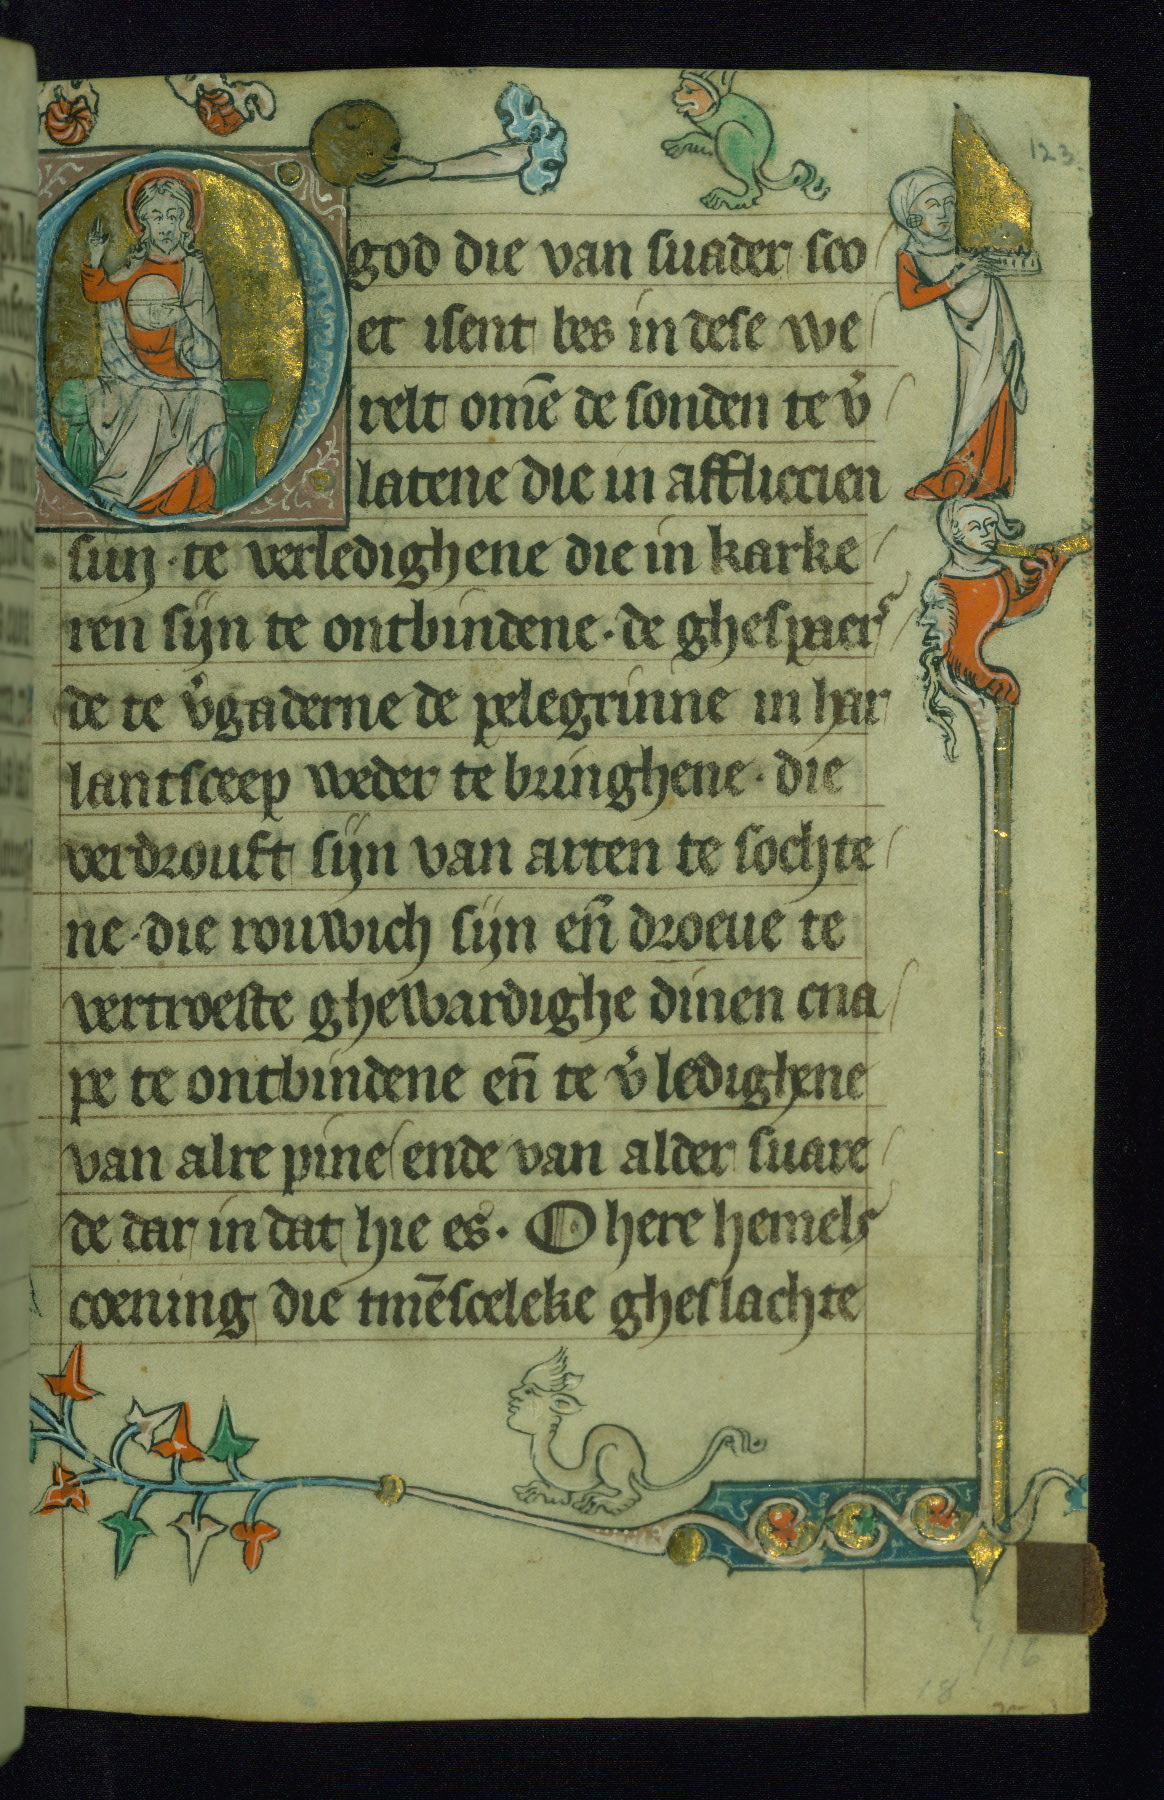 123
O god die van suader sco
et isent bes in dese we
relt om̄e de sonden te v̾
latene die in affliccien
sijn · te verledighene die in karke
ren sijn te ontbindene · de ghespaer
de te v̾gaderne de pelegrinne in har
lantsceep weder te bringhene · die
verdrouft sijn van arten te sochte
ne · die rouwich sijn eñ droeue te
vertroeste ghewardighe dinen cna
pe te ontbindene eñ te v̾ledighene
van alre pine ende van alder suare
de dar in dat hie es · O here hemels
coening die tmēsceleke gheslachte
116
18